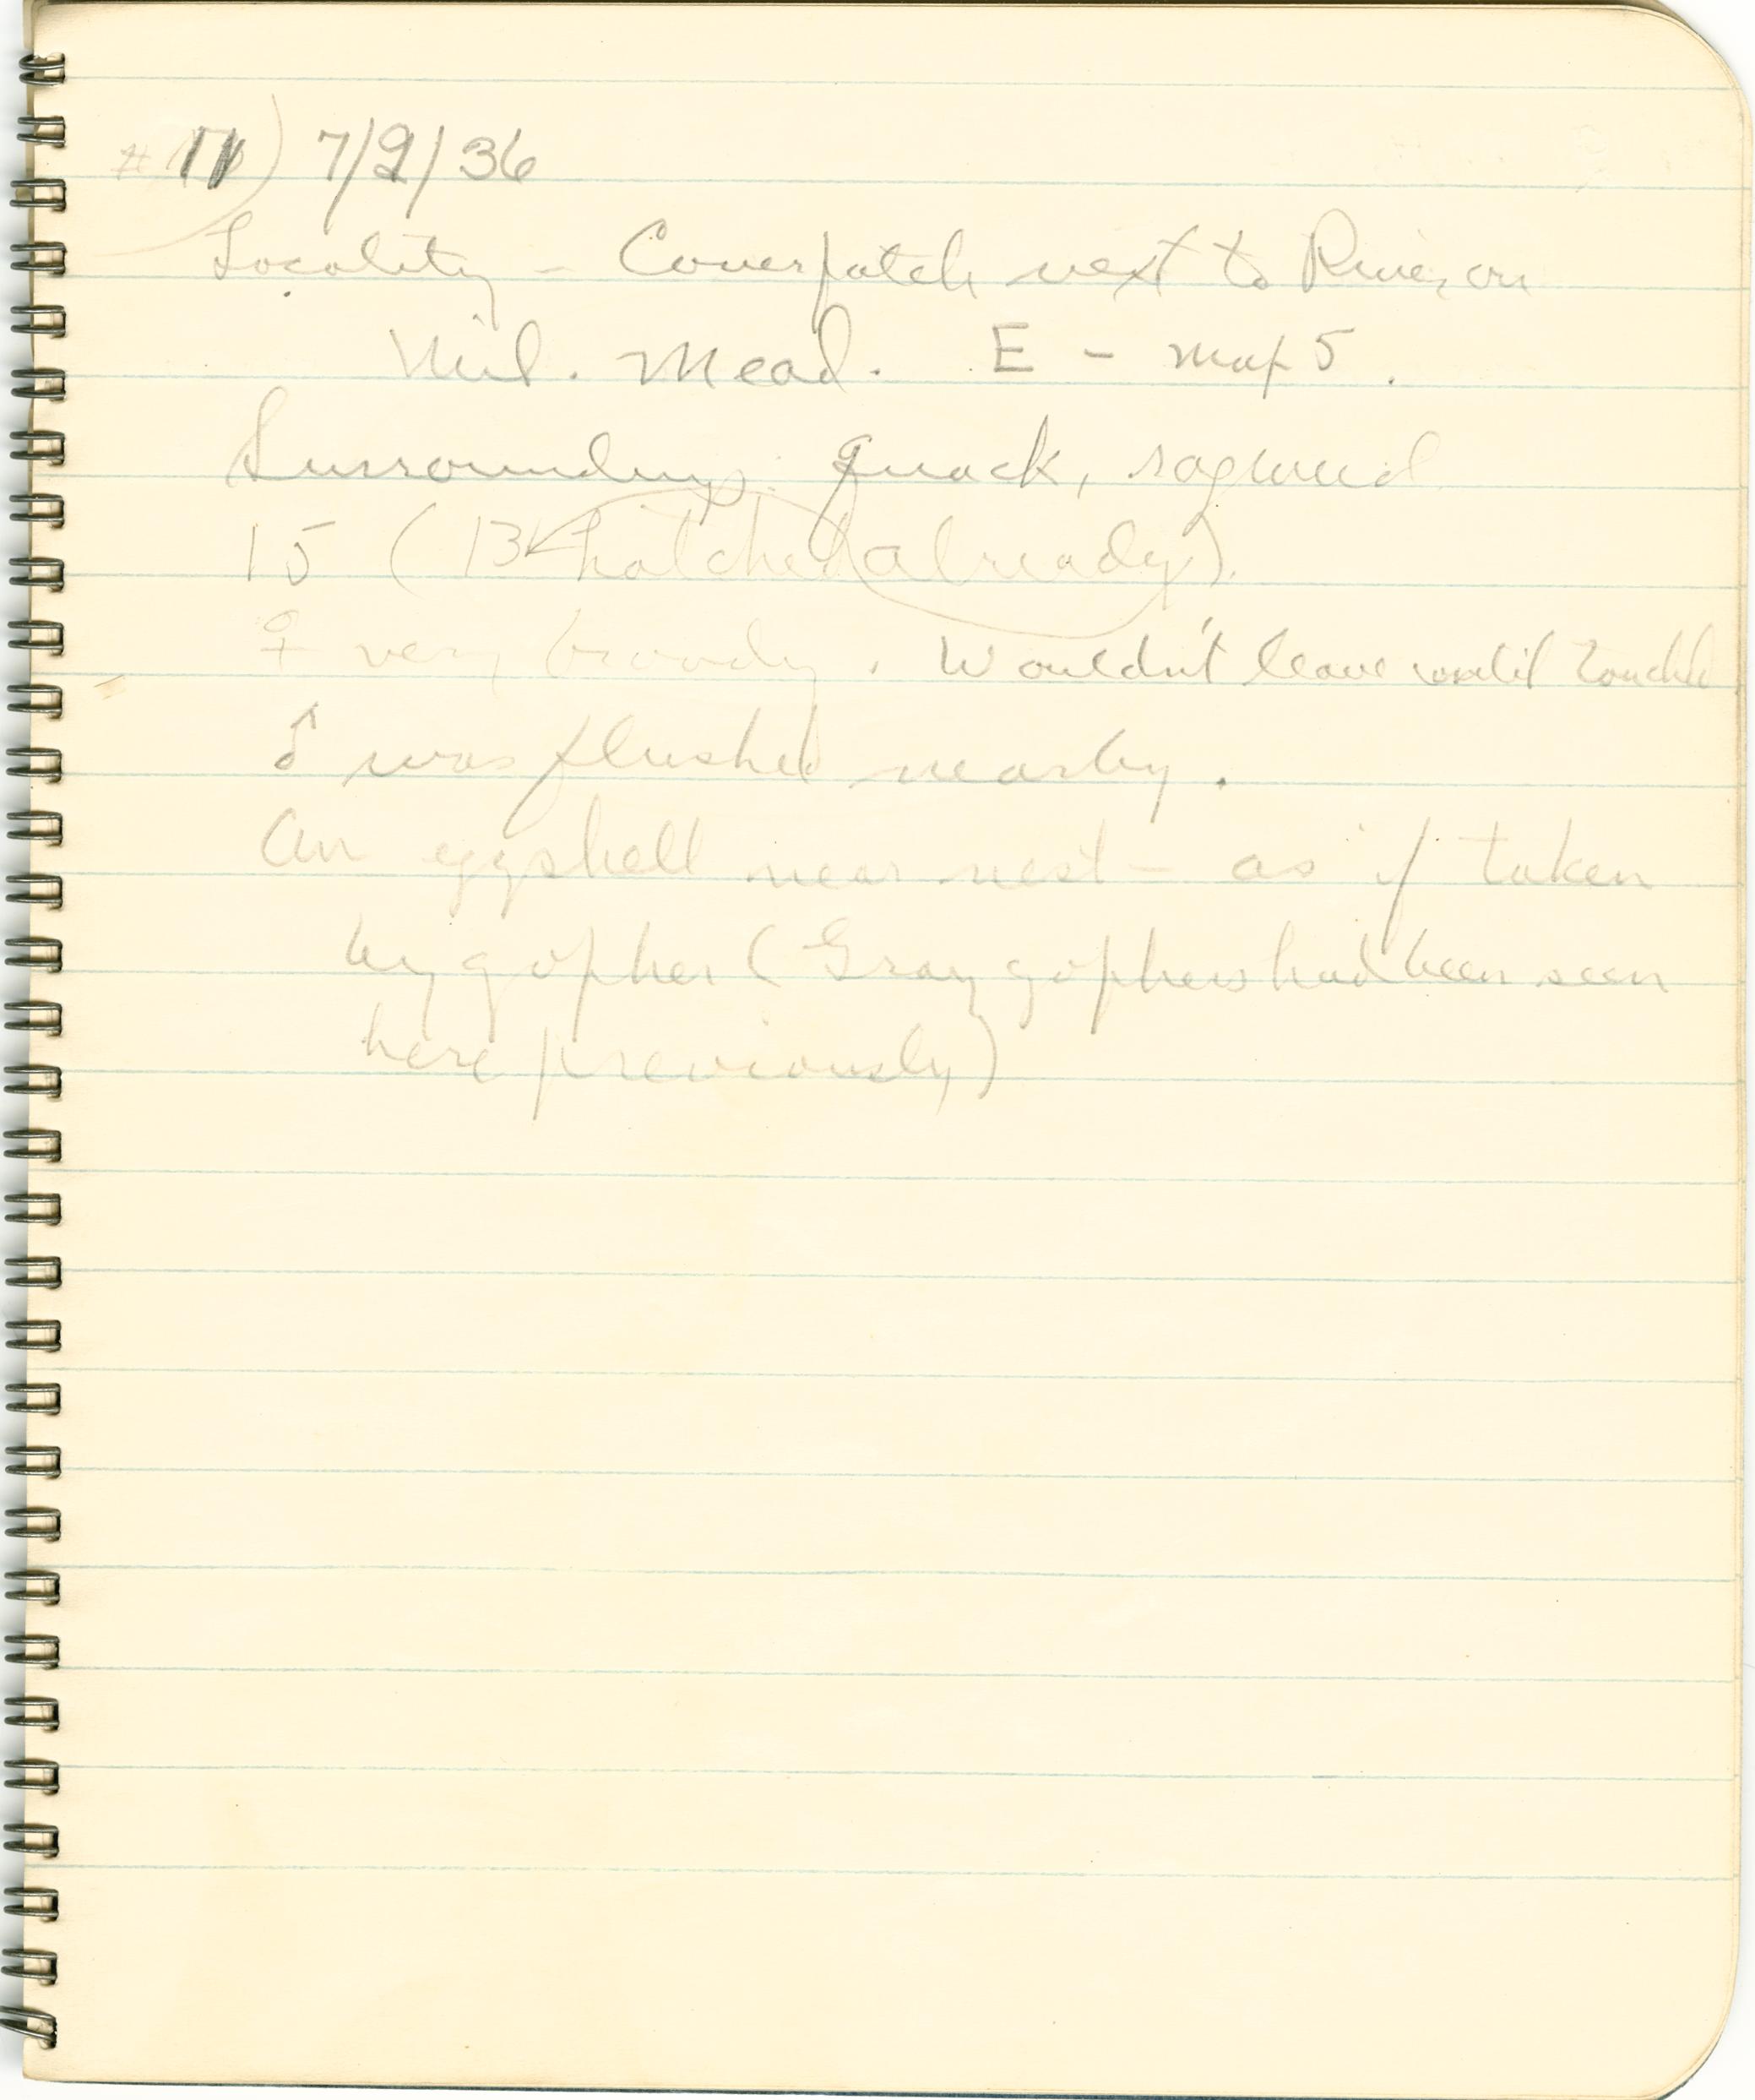 #11) 7/9/36
Locality - Coverpatch next to River on
Mil. Mead. E - map 5.
Surroundings: quack, ragweed
15 (13 hatched already).
♀ very broody. Wouldn't leave until touched
♂ was flushed nearby.
An eggshell near nest - as if taken
by gopher (Gray gophers had been seen
here previously)